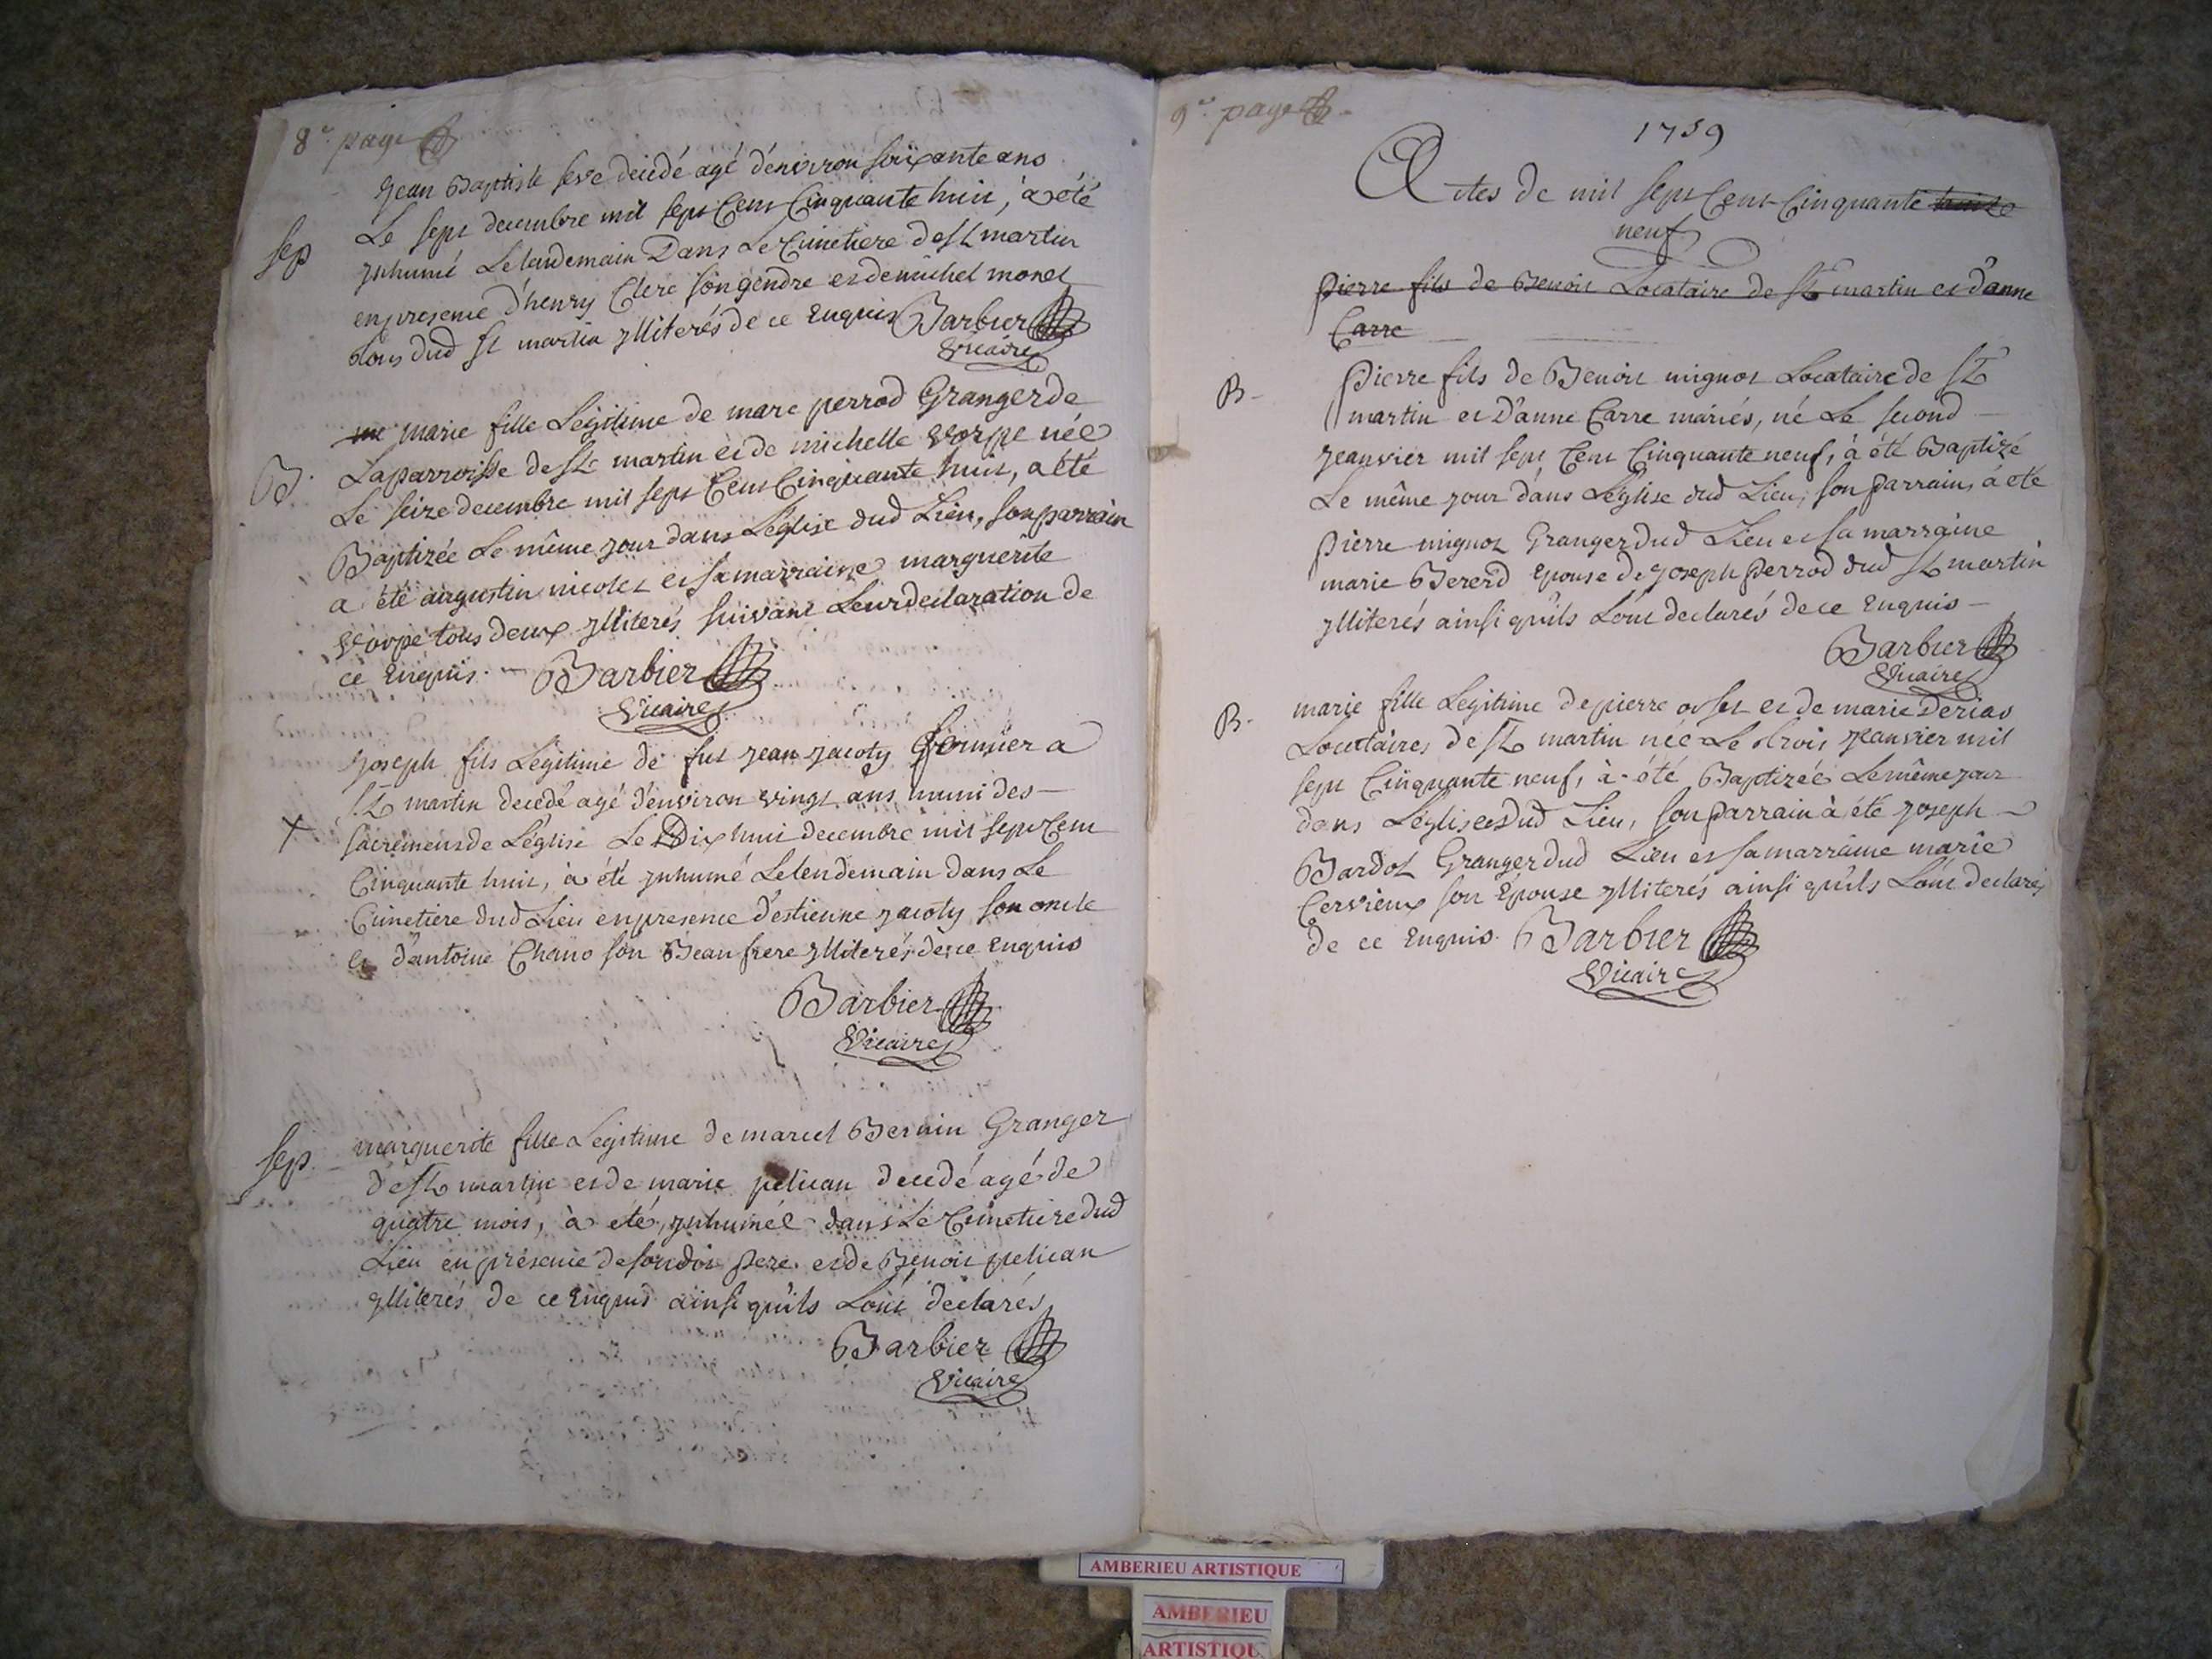 8e page
jean Baptiste seve decedé agé d'environ soixante ans
sep
Le sept decembre mil sept Cent Cinquante huit, à été
ynhumé Le landemain Dans Le Cimetiere de st martin
en presence d'henry Clerc son gendre et de michel monet
tous dud st martin ylliterés de ce Enquis Barbier
Vicaire
marie fille Légitime de marc perrod Granger de
B.
La parroisse de st martin et de michelle vorpe née
Le seize decembre mil sept Cent Cinquante huit, a été
Baptizée Le même jour dans L'église dud Lieu, son parrain
a été augustin nicolet et sa marraine marguerite
vorpe tous deux ylliterés suivant Leur declaration de
ce Enquis. Barbier
Vicaire
joseph fils Légitime de fut jean jacoty fermier a
st martin decedé agé d'environ vingt ans muni des
+
sacremens de L'église Le Dix huit decembre mil sept Cent
Cinquante huit, à été ynhumé Le lendemain dans Le
Cimetiere dud Lieu en presence d'estienne jacoty son oncle
et d'antoine Chano son Beau frere ylliterés de ce Enquis
Barbier
Vicaire
sep.
marguerite fille Légitime de marcel Bernin Granger
de st martin et de marie pelican decedé agé de
quatre mois, à été ynhumée dans Le Cimetiere dud
Lieu en présence de son dit pere et de Benoit pelican
ylliterés de ce Enquis ainsi qu'ils L'ont declarés
Barbier
Vicaire
9e page
1759
Actes de mil sept Cent Cinquante
neuf
pierre fils de Benoit Locataire de st martin et d'anne
Carre
B-
pierre fils de Benoit mignot Locataire de st
martin et D'anne Carre mariés, né Le second
jeanvier mil sept Cent Cinquante neuf, à été Baptizé
Le même jour dans L'église dud Lieu, son parrain, à été
pierre mignot Granger dud Lieu et sa marraine
marie Bererd Epouse de joseph perrod dud st martin
ylliterés ainsi qu'ils L'ont declarés de ce Enquis
Barbier
Vicaire
B.
marie fille Legitime de pierre et de marie Derias
Locataires de st martin née Le trois jeanvier mil
sept Cinquante neuf, à été Baptizée Le même jour
dans L'église Dud Lieu, son parrain à été joseph
Bardot Granger dud Lieu et sa marraine marie
Cervieux son Epouse ylliterés ainsi qu'ils L'ont declarés
de ce Enquis. Barbier
Vicaire
AMBERIEU ARTISTIQUE
AMBERIEU
ARTISTIQU